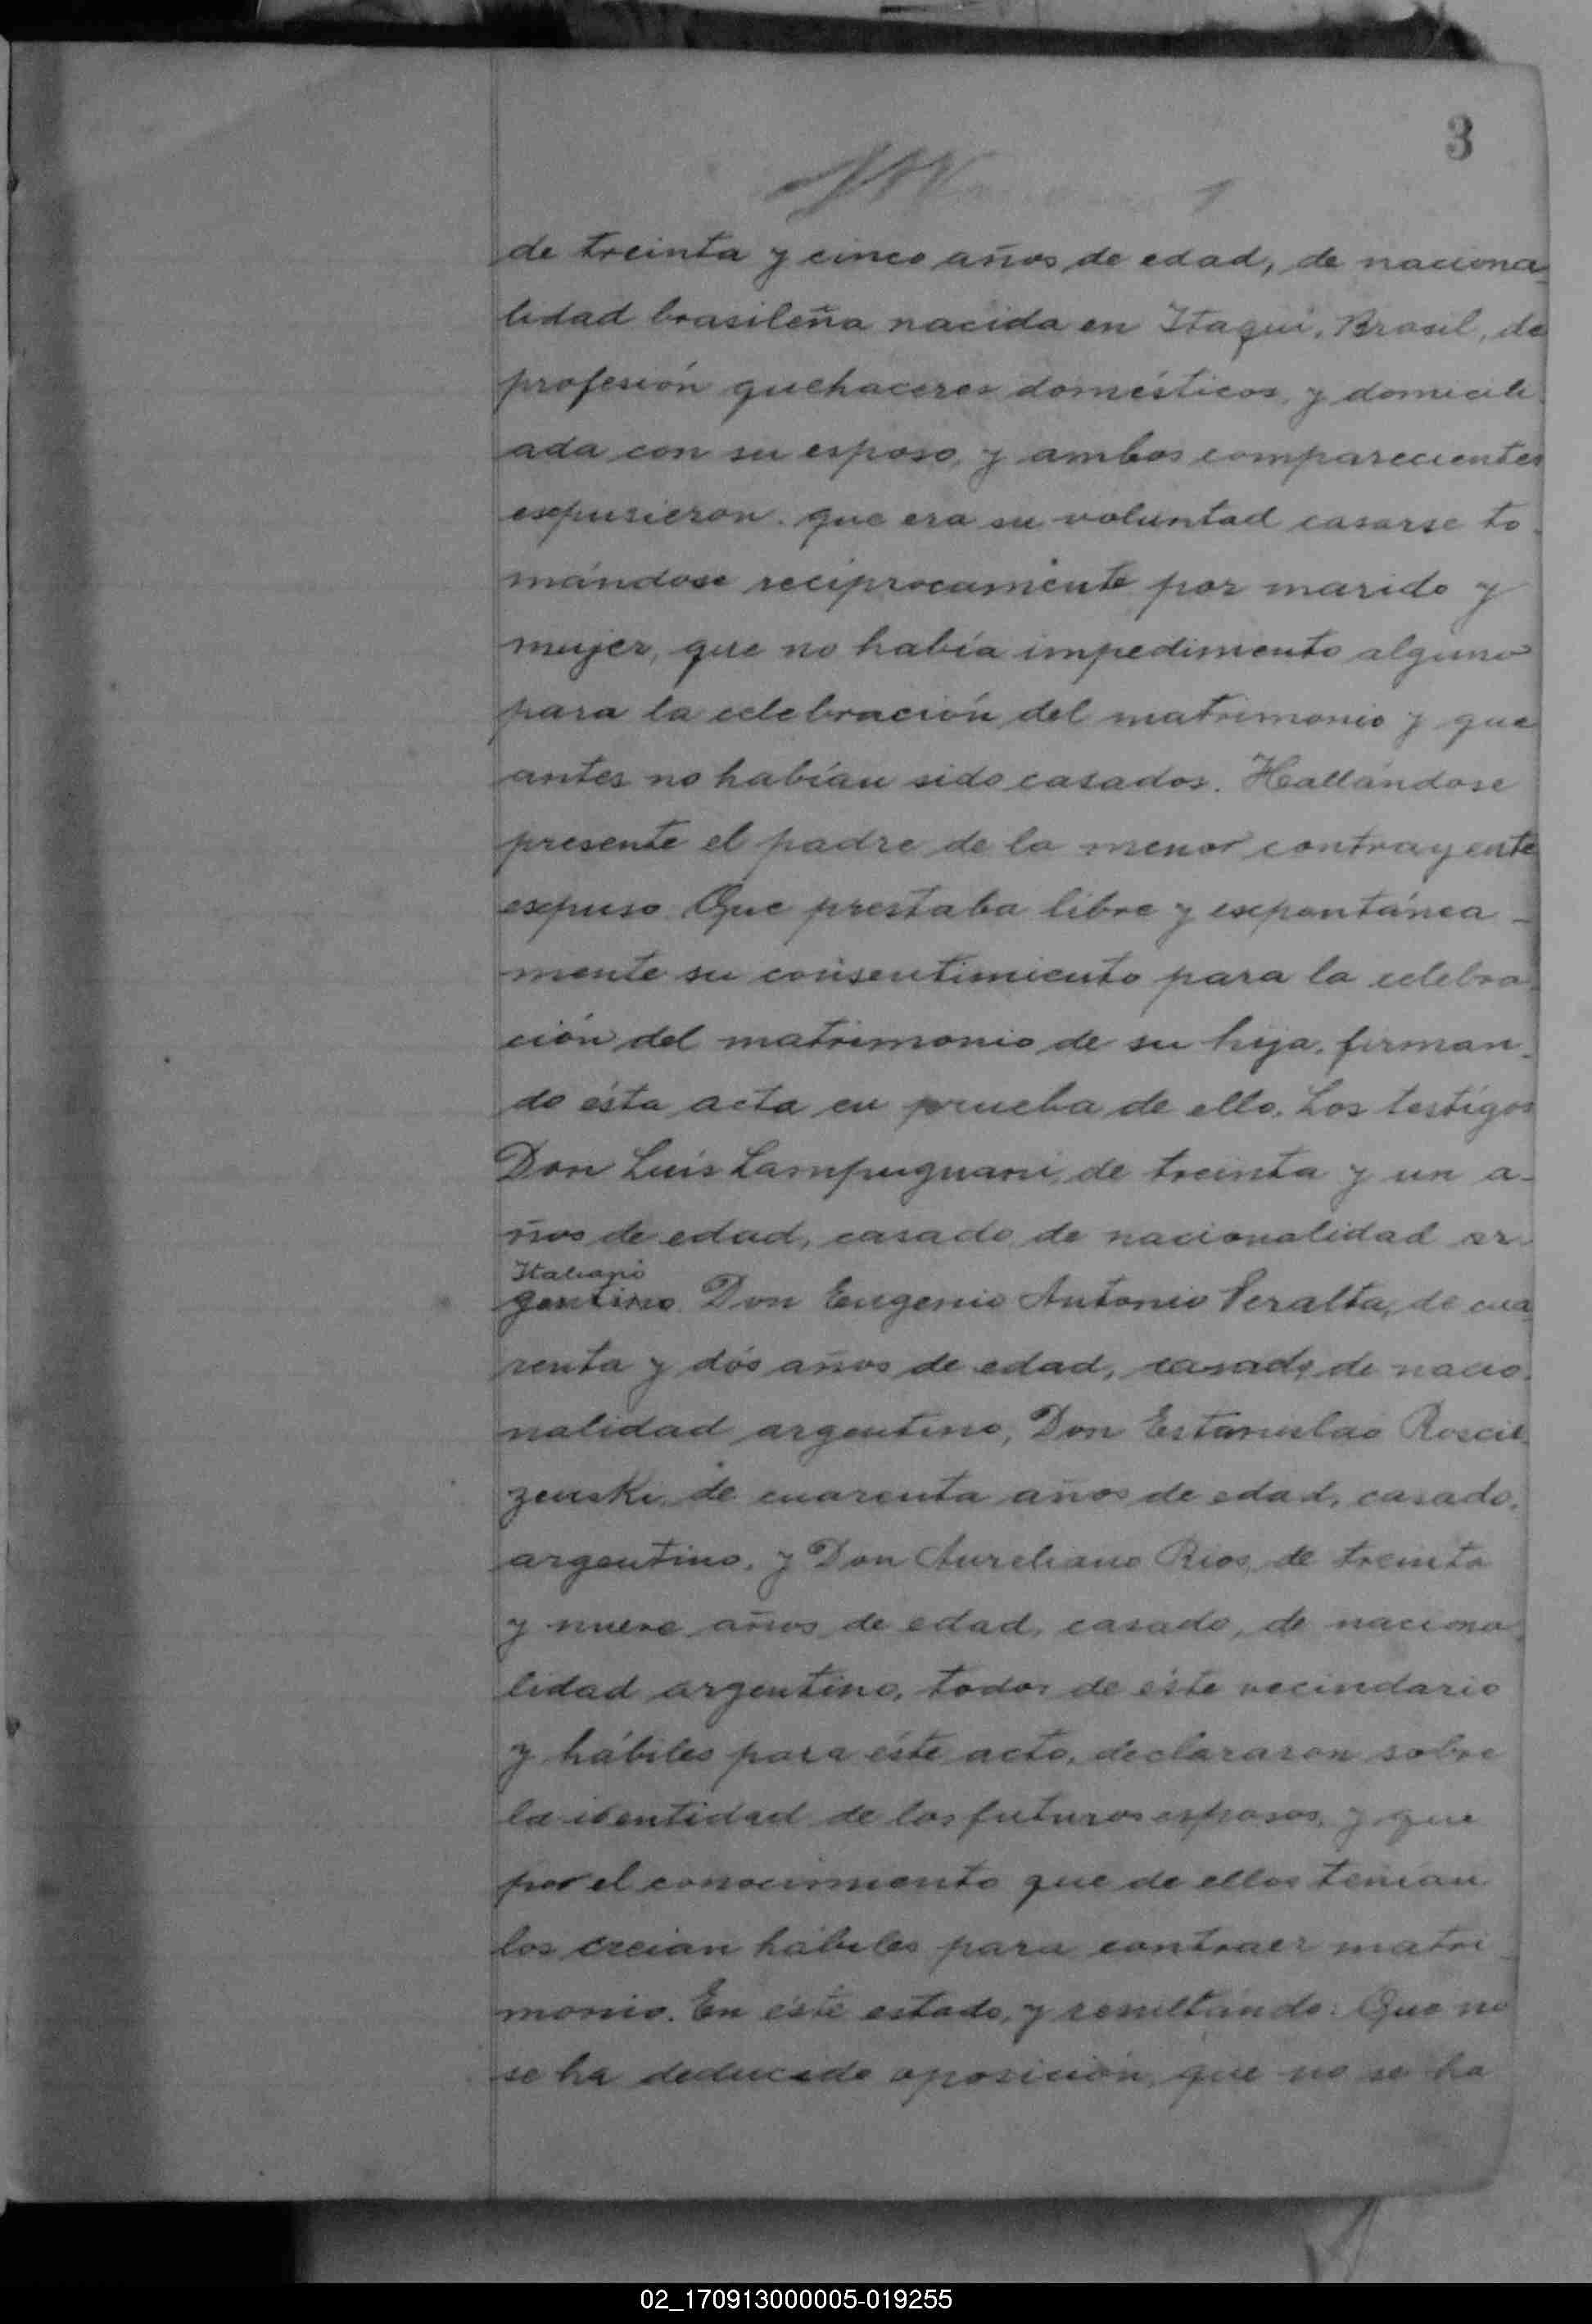 3
de treinta y cinco años de edad, de naciona-
lidad brasileña nacida en Itaquí, Brasil, de
profesión quehaceres domésticos, y domicili-
ada con su esposo, y ambos comparecientes
expusieron. que era su voluntad casarse to-
mándose recíprocamente por marido y
mujer, que no había impedimento alguno
para la celebración del matrimonio y que
antes no habían sido casados. Hallándose
presente el padre de la menor contrayente
expuso Que prestaba libre y expontánea-
mente su consentimiento para la celebra-
ción del matrimonio de su hija, firman-
do ésta acta en prueba de ello. Los testigos
Don Luis Lampugnani, de treinta y un a-
ños de edad, casado de nacionalidad ar-
Italiano
gentino Don Eugenio Antonio Peralta, de cua-
renta y dós años de edad, casado, de nacio-
nalidad argentino, Don Estanislao
de cuarenta años de edad, casado,
argentino, y Don Aureliano Rios, de treinta
y nueve años de edad, casado, de naciona-
lidad argentino, todos de éste vecindario
y hábiles para éste acto, declararon sobre
la identidad de los futuros esposos, y que
por el conocimiento que de ellos tenían
los creian hábiles para contraer matri-
monio. En éste estado, y resultando: Que no
se ha deducido oposición, que no se ha
02_170913000005-019255